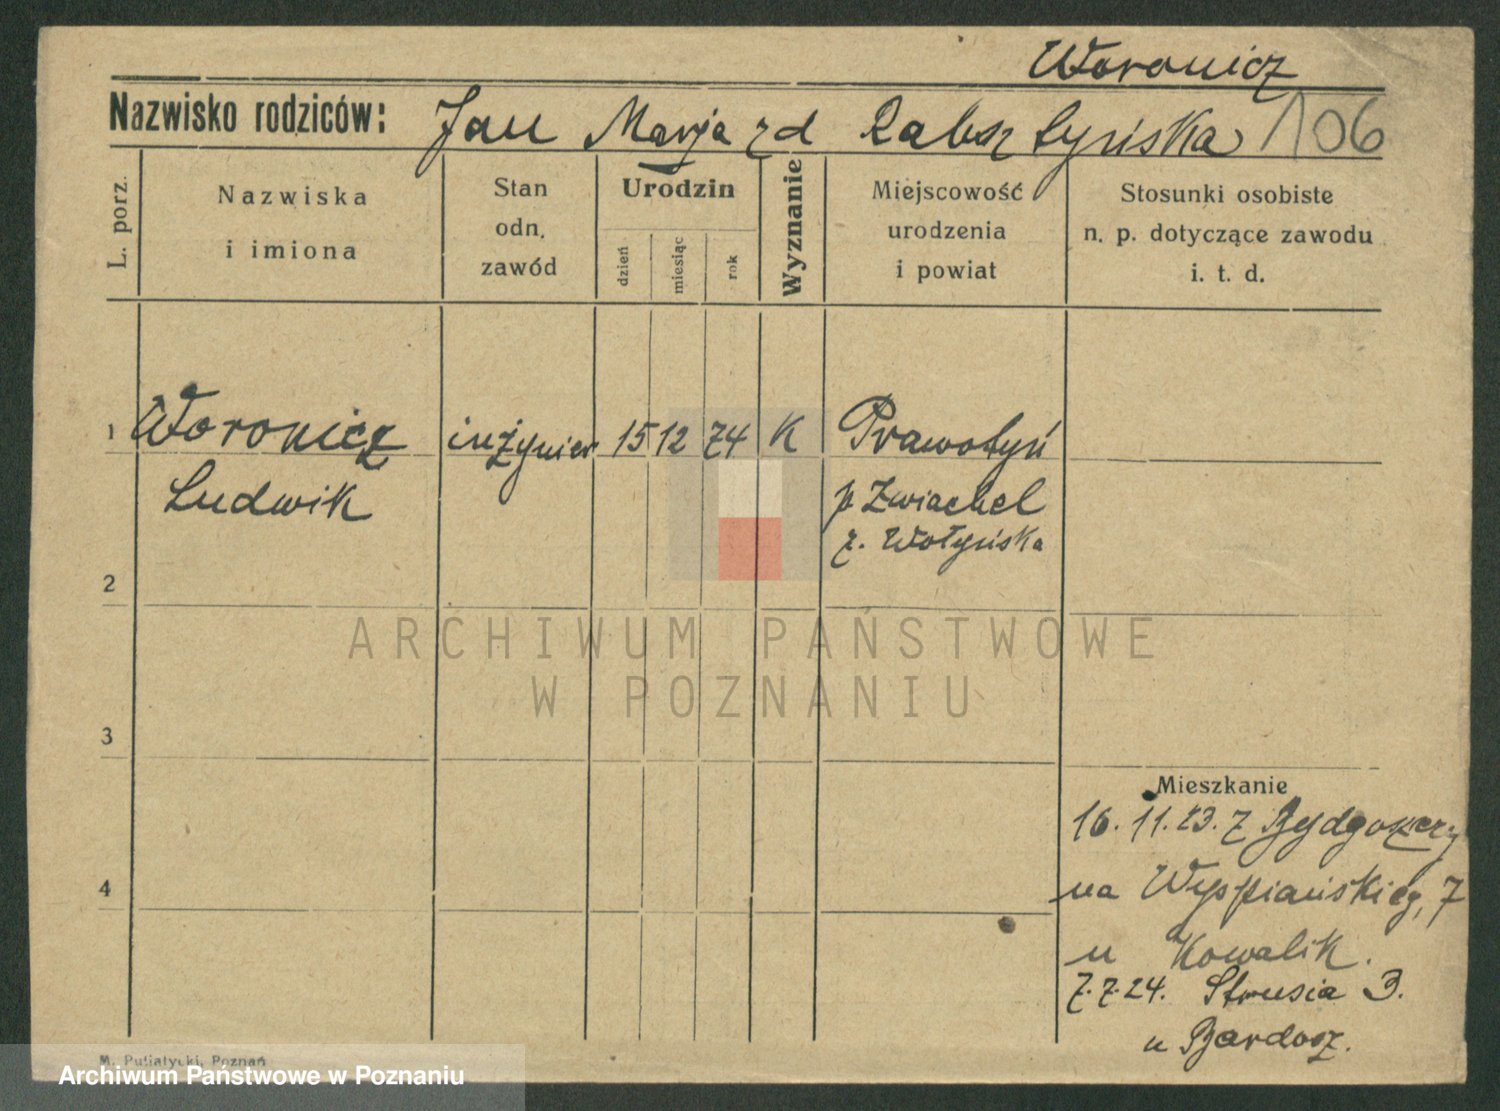 Woronicz
Nazwisko rodziców: Jan Marja zd Rabsztyńska 106
L. porz.
Nazwiska
i imiona
Stan
odn.
zawód
Urodzin
dzień
miesiąc
rok
Wyznanie
Miejscowość
urodzenia
i powiat
Stosunki osobiste
n. p. dotyczące zawodu
i. t. d.
1 Woronicz inżynier 15 12 74 K Prawotyń
Ludwik p Zwiachel
z. Wołyńska
2
ARCHIWUM PAŃSTWOWE
W POZNANIU
3
Mieszkanie
16. 11. 23. z Bydgoszczy
4
na Wyspiańskieg, 7
u Kowalik.
7.7.24. Strusia 3.
u Bardosz.
M. Putiatycki, Poznań
Archiwum Państwowe w Poznaniu